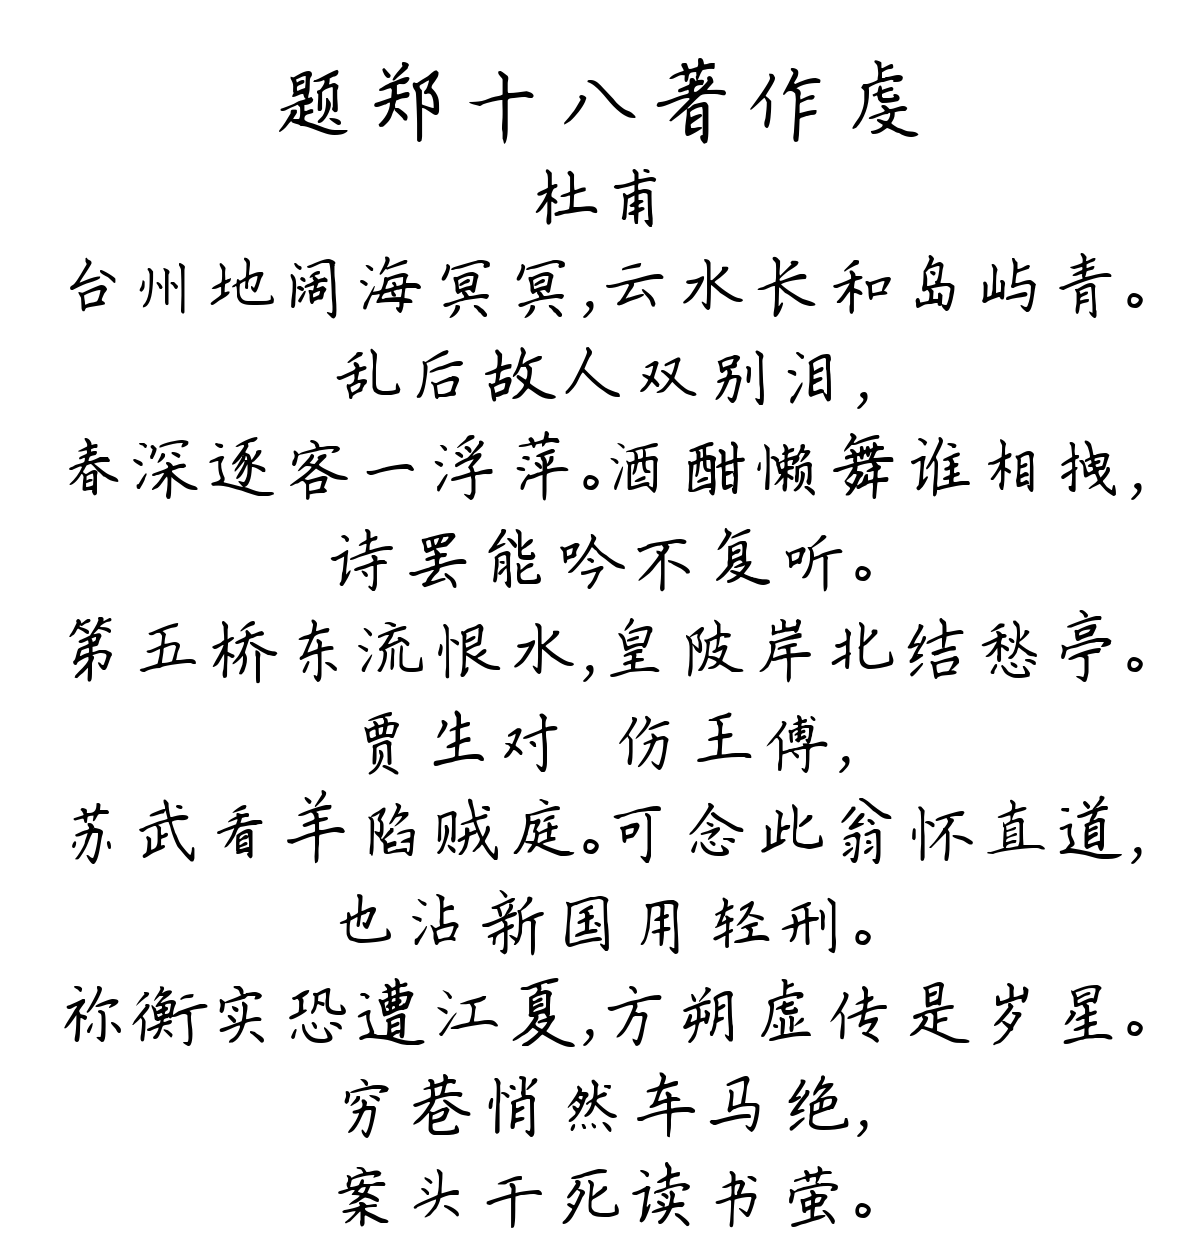 题郑十八著作虔
杜甫
台州地阔海冥冥,云水长和岛屿青。
乱后故人双别泪,
春深逐客一浮萍。酒酣懒舞谁相拽,
诗罢能吟不复听。
第五桥东流恨水,皇陂岸北结愁亭。
贾生对 伤王傅,
苏武看羊陷贼庭。可念此翁怀直道,
也沾新国用轻刑。
祢衡实恐遭江夏,方朔虚传是岁星。
穷巷悄然车马绝,
案头干死读书萤。